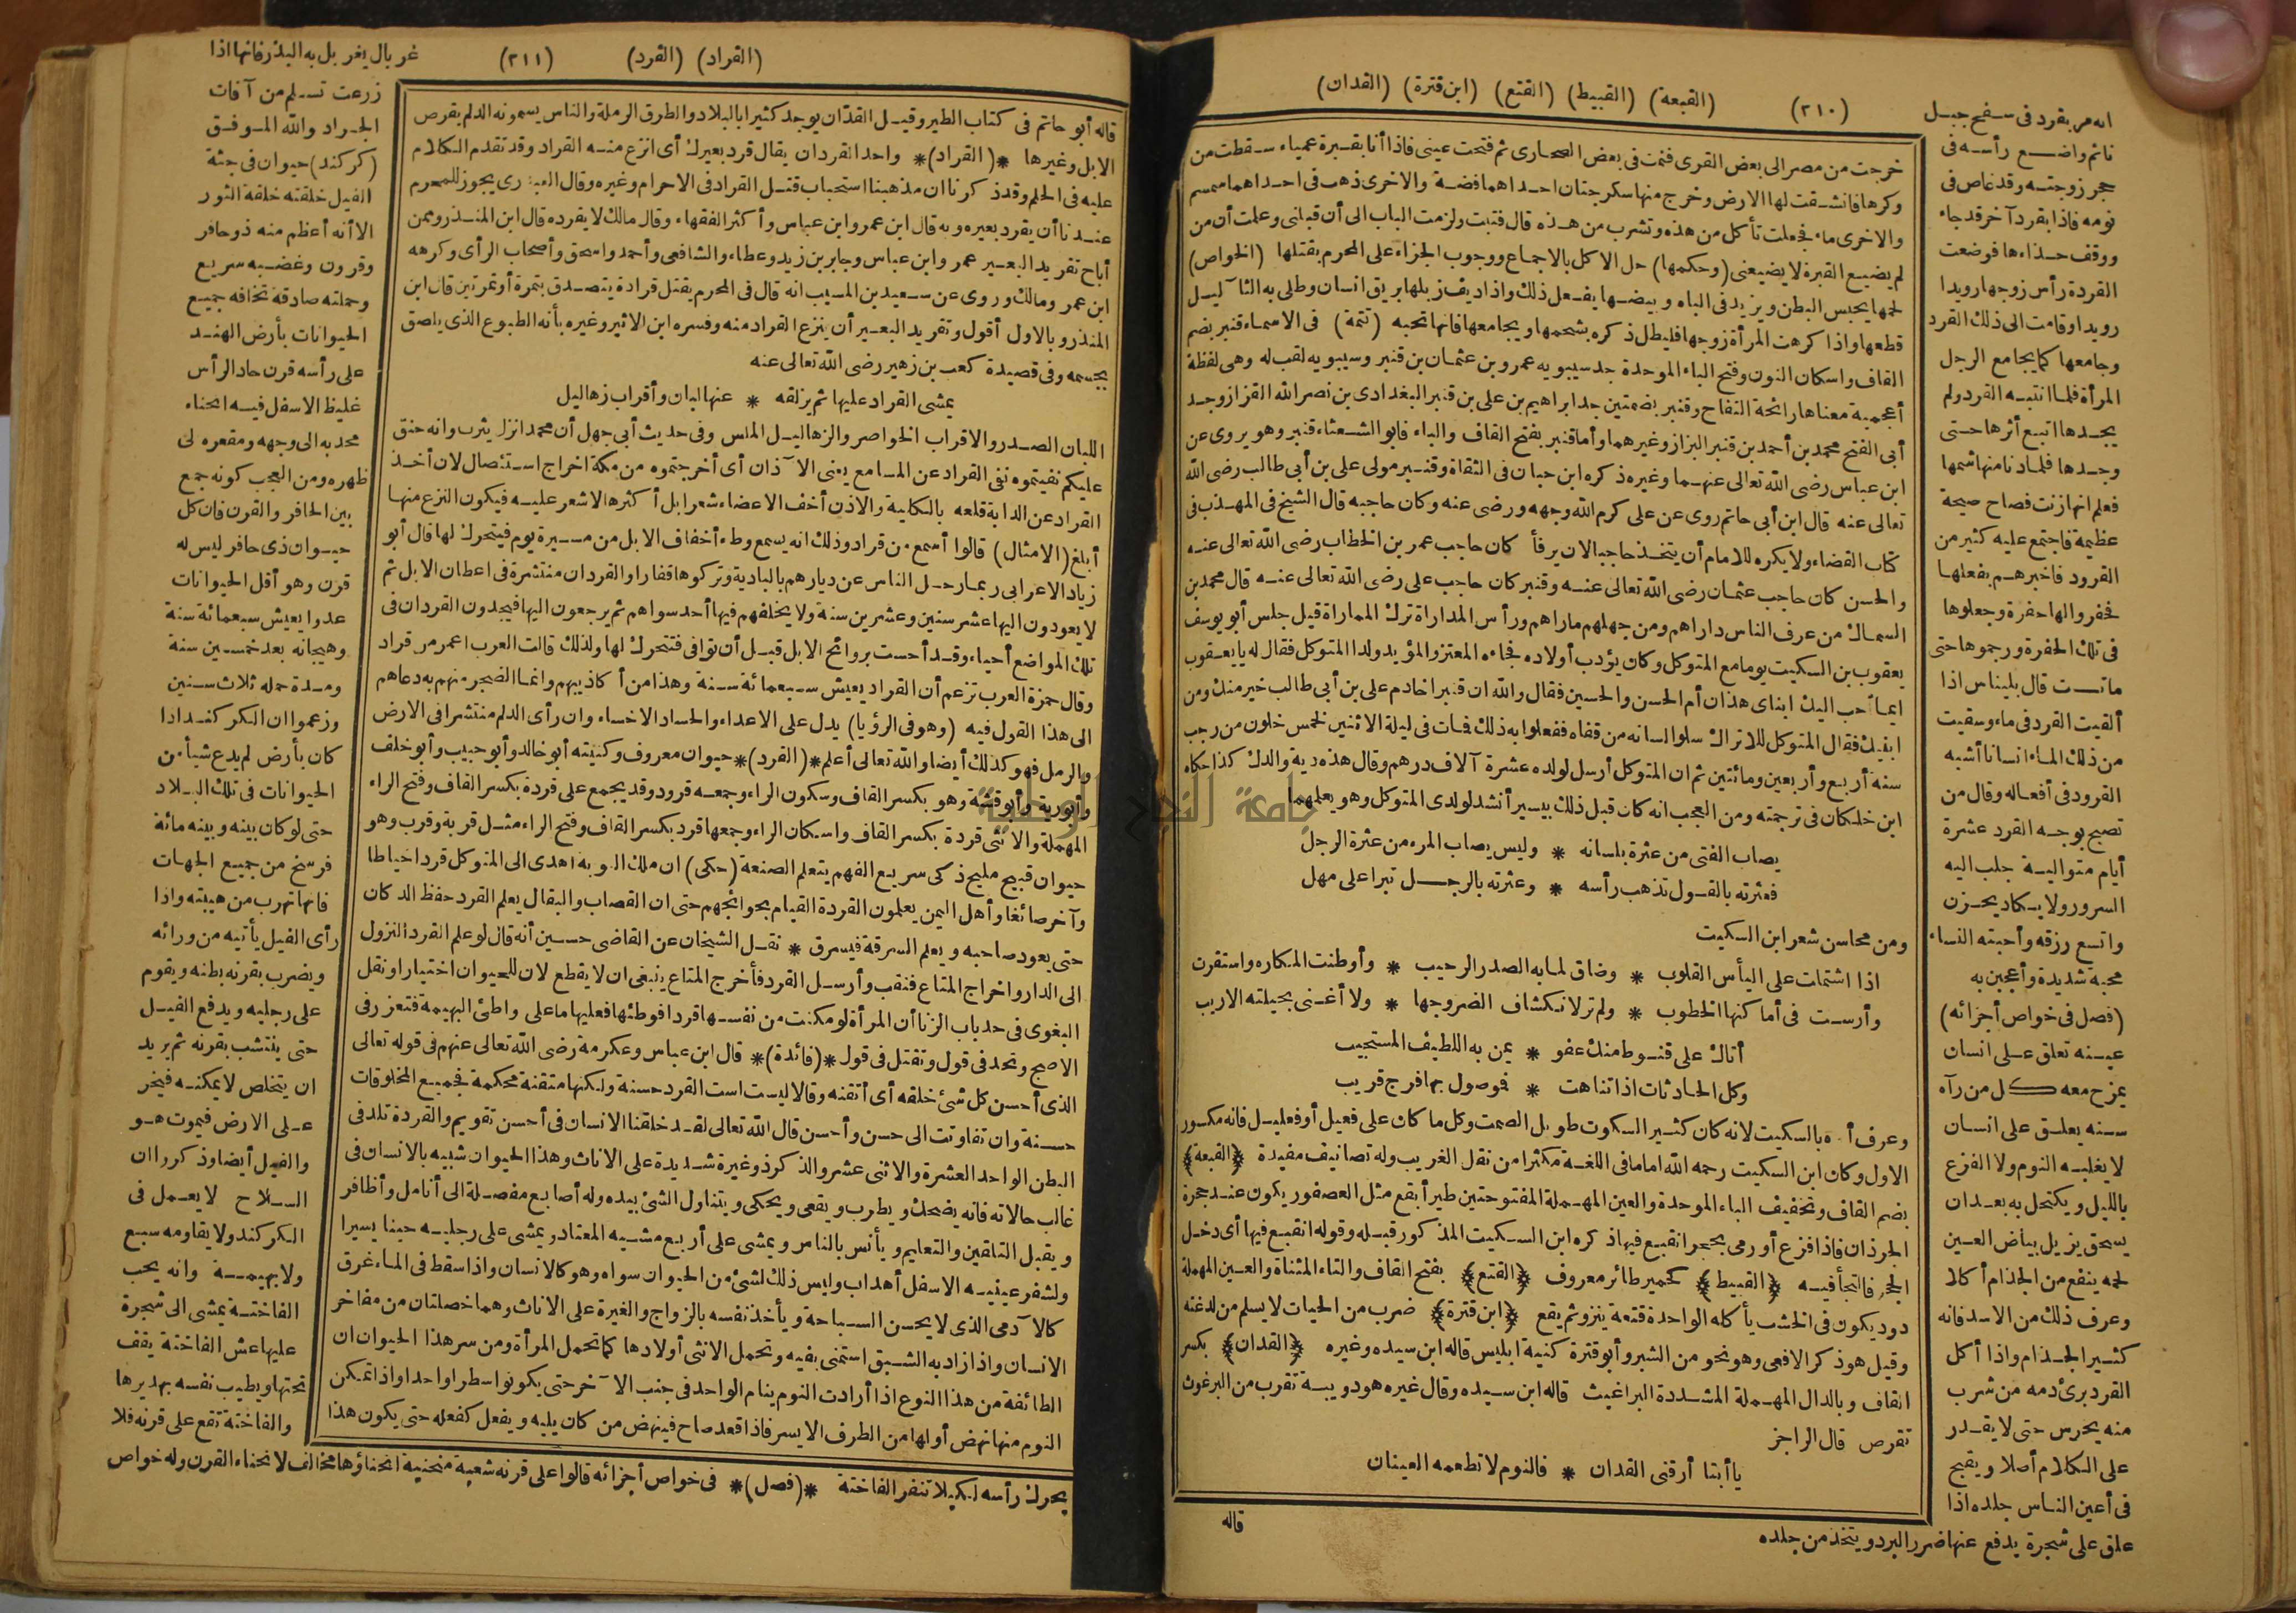 (٢١٠)
(القبعة) (القبيط) (القتع) (ابن قترة) (القدان)
خرجت من مصر الى بعض القرى فنمت فى بعض الصحارى ثم فتحت عينى فاذا أنا بقنبرة عمياء سقطت من
وكرها فانشقت لها الارض وخرج منها سكرجتان احداهما فضة والاخرى ذهب فى احداهما سمسم
والاخرى ماء فجعلت تأكل من هذه وتشرب من هذه قال فتبت ولزمت الباب الى أن قبلنى وعلمت أن من
لم يضيع القبرة لا يضيعنى (وحكمها) حل الاكل بالاجماع ووجوب الجزاء على المحرم بقتلها (الخواص)
لحمها يحبس البطن ويزيد فى الباه وبيضها يفعل ذلك واذا ديف زبلها بريق انسان وطلى به الثآليل
قطعها واذا كرهت المرأة زوجها فليطل ذكره بشحمها ويجامعها فانها تحبه (تتمة) فى الاسماء قنبر بضم
القاف واسكان النون وفتح الباء الموحدة جد سيبويه عمرو بن عثمان بن قنبر وسيبويه لقب له وهى لفظة
أعجمية معناها رائحة التفاح وقنبر بضمتين جد ابراهيم بن على بن قنبر البغدادى بن نصر الله القزاز وجد
أبى الفتح محمد بن أحمد بن قنبر البزاز وغيرهما وأما قنبر بفتح القاف والباء فابو الشعثاء قنبر وهو يروى عن
ابن عباس رضى الله تعالى عنهما وغيره ذكره ابن حبان فى الثقاة وقنبر مولى على بن أبى طالب رضى الله
تعالى عنه قال ابن أبى حاتم روى عن على كرم الله وجهه ورضى عنه وكان حاجبه قال الشيخ فى المهذب فى
كتاب القضاء ولا يكره للامام أن يتخذ حاجبا لان يرفأ كان حاجب عمر بن الخطاب رضى الله تعالى عنه
والحسن كان حاجب عثمان رضى الله تعالى عنه وقنبر كان حاجب على رضى الله تعالى عنه قال محمد بن
السماك من عرف الناس داراهم ومن جهلهم ماراهم ورأس المداراة ترك المماراة قيل جلس أبو يوسف
يعقوب بن السكيت يوما مع المتوكل وكان يؤدب أولاده فجاءه المعتز والمؤيد ولدا المتوكل فقال له يا يعقوب
ايما أحب اليك ابناى هذان أم الحسن والحسين فقال والله ان قنبرا خادم على بن أبى طالب خير منك ومن
ابنيك فقال المتوكل للاتراك سلوا لسانه من قفاه ففعلوا به ذلك فمات فى ليلة الاثنين لخمس خلون من رجب
سنة أربع وأربعين ومائتين ثم ان المتوكل أرسل لولده عشرة آلاف درهم وقال هذه دية والدك كذا حكاه
ابن خلكان فى ترجمته ومن العجب انه كان قبل ذلك بيسير أنشد لولدى المتوكل وهو يعلمهما
يصاب الفتى من عثرة بلسانه * وليس يصاب المرء من عثرة الرجل
فعثرته بالقول تذهب رأسه * وعثرته بالرجل تبرا على مهل
ومن محاسن شعر ابن السكيت
اذا اشتملت على اليأس القلوب * وضاق لما به الصدر الرحيب * وأوطنت المكاره واستقرت
وأرست فى أماكنها الخطوب * ولم تر لانكشاف الضر وجها * ولا أغنى بحيلته الاريب
أتاك على قنوط منك عفو * يمن به اللطيف المستجيب
وكل الحادثات اذا تناهت * فموصول بها فرج قريب
وعرف أبوه بالسكيت لانه كان كثير السكوت طويل الصمت وكل ما كان على فعيل أو فعليل فانه مكسور
الاول وكان ابن السكيت رحمه الله اماما فى اللغة مكثرا من نقل الغريب وله تصانيف مفيدة ﴿القبعة﴾
بضم القاف وتخفيف الباء الموحدة والعين المهملة المفتوحتين طير أبقع مثل العصفور يكون عند حجرة
الجرذان فاذا فزع أو رمى بحجر انقبع فيها ذكره ابن السكيت المذكور قبله وقوله انقبع فيها أى دخل
الجحر فالتجأ فيه ﴿القبيط﴾ كحمير طائر معروف ﴿القتع﴾ بفتح القاف والتاء المثناة والعين المهملة
دود يكون فى الخشب يأكله الواحدة قتعة ينزو ثم يقع ﴿ابن قترة﴾ ضرب من الحيات لا يسلم من لدغته
وقيل هو ذكر الافعى وهو نحو من الشبر وأبو قترة كنية ابليس قاله ابن سيده وغيره ﴿القدان﴾ بكسر
القاف وبالدال المهملة المشددة البراغيث قاله ابن سيده وقال غيره هو دويبة تقرب من البرغوث
تقرص قال الراجز
يا أبتا أرقنى القدان * فالنوم لا تطعمه العينان
قاله
انه مر بقرد فى سفح جبل
نائم واضع رأسه فى
حجر زوجته وقد غاص فى
نومه فاذا بقرد آخر قد جاء
ووقف حذاءها فوضعت
القردة رأس زوجها رويدا
رويدا وقامت الى ذلك القرد
وجامعها كما يجامع الرجل
المرأة فلما انتبه القرد ولم
يجدها اتبع أثرها حتى
وجدها فلما دنا منها شمها
فعلم انها زنت فصاح صيحة
عظيمة فاجتمع عليه كثير من
القرود فاخبرهم بفعلها
فحفروا لها حفرة وجعلوها
فى تلك الحفرة ورجموها حتى
ماتت قال بليناس اذا
ألقيت القرد فى ماء وسقيت
من ذلك الماء انسانا أشبه
القرود فى أفعاله وقال من
تصبح بوجه القرد عشرة
أيام متوالية جلب اليه
السرور ولا يكاد يحزن
واتسع رزقه وأحبته النساء
محبة شديدة وأعجبن به
(فصل فى خواص أجزائه)
عينه تعلق على انسان
يمزح معه كل من رآه
سنه يعلق على انسان
لا يغلبه النوم ولا الفزع
بالليل ويكتحل به بعد ان
يسحق يزيل بياض العين
لحمه ينفع من الجذام أكلا
وعرف ذلك من الاسد فانه
كثير الجذام واذا أكل
القرد برئ دمه من شرب
منه يخرس حتى لا يقدر
على الكلام أصلا ويقبح
فى أعين الناس جلده اذا
علق على شجرة يدفع عنها ضرر البرد ويتخذ من جلده
(القراد) (القرد)
(٢١١)
قاله أبو حاتم فى كتاب الطير وقيل القدّان يوجد كثيرا بالبلاد والطرق الرملة والناس يسمونه الدلم يقرص
الابل وغيرها *(القراد)* واحد القردان يقال قرد بعيرك أى انزع منه القراد وقد تقدم الكلام
عليه فى الحلم وقد ذكرنا ان مذهبنا استحباب قتل القراد فى الاحرام وغيره وقال العبدرى يجوز للمحرم
عندنا أن يقرد بعيره وبه قال ابن عمر وابن عباس وأكثر الفقهاء وقال مالك لا يقرده قال ابن المنذر وممن
أباح تقريد البعير عمر وابن عباس وجابر بن زيد وعطاء والشافعى وأحمد واسحق وأصحاب الرأى وكرهه
ابن عمر ومالك وروى عن سعيد بن المسيب انه قال فى المحرم يقتل قرادة يتصدق بتمرة أو تمرتين قال ابن
المنذر وبالاول أقول وتقريد البعير أن ينزع القراد منه وفسره ابن الاثير وغيره بأنه الطبوع الذى يلصق
بجسمه وفى قصيدة كعب بن زهير رضى الله تعالى عنه
يمشى القراد عليها ثم يزلقه * عنها لبان وأقراب زهاليل
اللبان الصدر والاقراب الخواصر والزهاليل الملس وفى حديث أبى جهل أن محمدا نزل يثرب وانه حنق
عليكم نفيتموه نفى القراد عن المسامع يعنى الآذان أى أخرجتموه من مكة اخراج استئصال لان أخذ
القراد عن الدابة قلعه بالكلية والاذن أخف الاعضاء شعرا بل أكثرها لا شعر عليه فيكون النزع منها
أبلغ (الامثال) قالوا أسمع من قراد وذلك انه يسمع وطء أخفاف الابل من مسيرة يوم فيتحرك لها قال أبو
زياد الاعرابى ربما رحل الناس عن ديارهم بالبادية وتركوها قفارا والقردان منتثرة فى اعطان الابل ثم
لا يعودون اليها عشر سنين وعشرين سنة ولا يخلفهم فيها أحد سواهم ثم يرجعون اليها فيجدون القردان فى
تلك المواضع أحياء وقد أحست بروائح الابل قبل أن توافى فتتحرك لها ولذلك قالت العرب اعمر من قراد
وقال حمزة العرب تزعم أن القراد يعيش سبعمائة سنة وهذا من أكاذيبهم وانما الضجر منهم به دعاهم
الى هذا القول فيه (وهو فى الرؤيا) يدل على الاعداء والحساد الاخساء وان رأى الدلم منتشرا فى الارض
والرمل فهو كذلك أيضا والله تعالى أعلم *(القرد)* حيوان معروف وكنيته أبو خالد وأبو حبيب وأبو خلف
وأبو ربة وأبو قشة وهو بكسر القاف وسكون الراء وجمعه قرود وقد يجمع على قردة بكسر القاف وفتح الراء
المهملة والانثى قردة بكسر القاف واسكان الراء وجمعها قرد بكسر القاف وفتح الراء مثل قربة وقرب وهو
حيوان قبيح مليح ذكى سريع الفهم يتعلم الصنعة (حكى) ان ملك النوبة اهدى الى المتوكل قردا خياطا
وآخر صائغا وأهل اليمن يعلمون القردة القيام بحوائجهم حتى ان القصاب والبقال يعلم القرد حفظ الدكان
حتى يعود صاحبه ويعلم السرقة فيسرق * نقل الشيخان عن القاضى حسين أنه قال لو علم القرد النزول
الى الدار واخراج المتاع فنقب وأرسل القرد فأخرج المتاع ينبغى ان لا يقطع لان للحيوان اختيارا ونقل
البغوى فى حد باب الزنا أن المرأة لو مكنت من نفسها قردا فوطئها فعليها ما على واطئ البهيمة فتعزر فى
الاصح وتحد فى قول وتقتل فى قول *(فائدة)* قال ابن عباس وعكرمة رضى الله تعالى عنهم فى قوله تعالى
الذى أحسن كل شئ خلقه أى أتقنه وقالا ليست است القرد حسنة ولكنها متقنة محكمة فجميع المخلوقات
حسنة وان تفاوتت الى حسن وأحسن قال الله تعالى لقد خلقنا الانسان فى أحسن تقويم والقردة تلد فى
البطن الواحد العشرة والاثنى عشر والذكر ذو غيرة شديدة على الاناث وهذا الحيوان شبيه بالانسان فى
غالب حالاته فانه يضحك ويطرب ويقعى ويحكى ويتناول الشئ بيده وله أصابع مفصلة الى أنامل وأظافر
ويقبل التلقين والتعليم ويأنس بالناس ويمشى على أربع مشيه المعتاد ويمشى على رجليه حينا يسيرا
ولشفر عينيه الاسفل أهداب وليس ذلك لشئ من الحيوان سواه وهو كالانسان واذا سقط فى الماء غرق
كالآدمى الذى لا يحسن السباحة ويأخذ نفسه بالزواج والغيرة على الاناث وهما خصلتان من مفاخر
الانسان واذا زاد به الشبق استمنى بفيه وتحمل الانثى أولادها كما تحمل المرأة ومن سر هذا الحيوان ان
الطائفة من هذا النوع اذا أرادت النوم ينام الواحد فى جنب الآخر حتى يكونوا سطرا واحدا واذا تمكن
النوم منها نهض أولها من الطرف الايسر فاذا قعد صاح فينهض من كان يليه ويفعل كفعله حتى يكون هذا
غربال يغربل به البذر فانها اذا
زرعت تسلم من آفات
الجراد والله الموفق
(كركند) حيوان فى جثة
الفيل خلقته خلقة الثور
الا أنه أعظم منه ذو حافر
وقرون وغضبه سريع
وحملته صادقة تخافه جميع
الحيوانات بأرض الهند
على رأسه قرن حاد الرأس
غليظ الاسفل فيه انحناء
محدبه الى وجهه ومقعره الى
ظهره ومن العجب كونه جمع
بين الحافر والقرن فان كل
حيوان ذى حافر ليس له
قرن وهو أقل الحيوانات
عدوا يعيش سبعمائة سنة
وهيجانه بعد خمسين سنة
ومدة حمله ثلاث سنين
وزعموا ان الكركند اذا
كان بأرض لم يدع شيأ من
الحيوانات فى تلك البلاد
حتى لو كان بينه وبينه مائة
فرسخ من جميع الجهات
فانها تهرب من هيبته واذا
رأى الفيل يأتيه من ورائه
ويضرب بقرنه بطنه ويقوم
على رجليه ويدفع الفيل
حتى ينتشب بقرنه ثم يريد
ان يتخلص لا يمكنه فيخر
على الارض فيموت هو
والفيل أيضا وذكروا ان
السلاح لا يعمل فى
الكركند ولا يقاومه سبع
ولا بهيمة وانه يحب
الفاختة يمشى الى شجرة
عليها عش الفاختة يقف
تحتها ويطيب نفسه بهديرها
والفاختة تقع على قرنه فلا
يحرك رأسه لكيلا تنفر الفاختة *(فصل)* فى خواص أجزائه قالوا على قرنه شعبة منحنية انحناؤها مخالف لانحناء القرن وله خواص
جامعة النجاح الوطنية